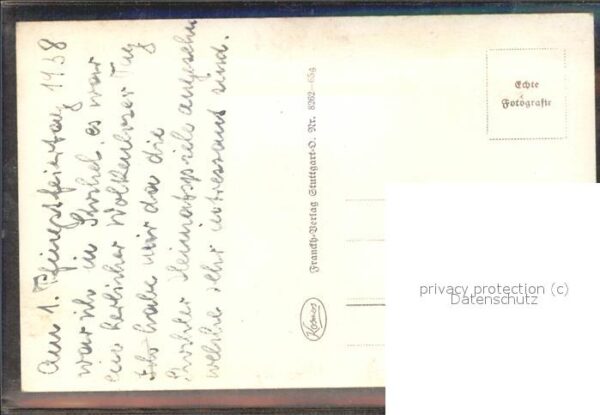 Am 1. Pfingstfeiertag 1938
war ich in es war
ein herlicher Wolkenloser Tag
Ich habe mir da die
Heimatspiele angesehn
welche sehr intressant sind.
Franckh-Verlag Stuttgart-O. Nr. 8262-65g
Kosmos
Echte
Fotografie
privacy protection (c)
Datenschutz